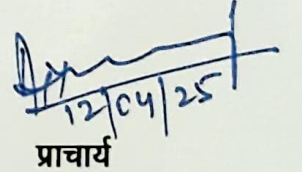 12/04/25
प्राचार्य